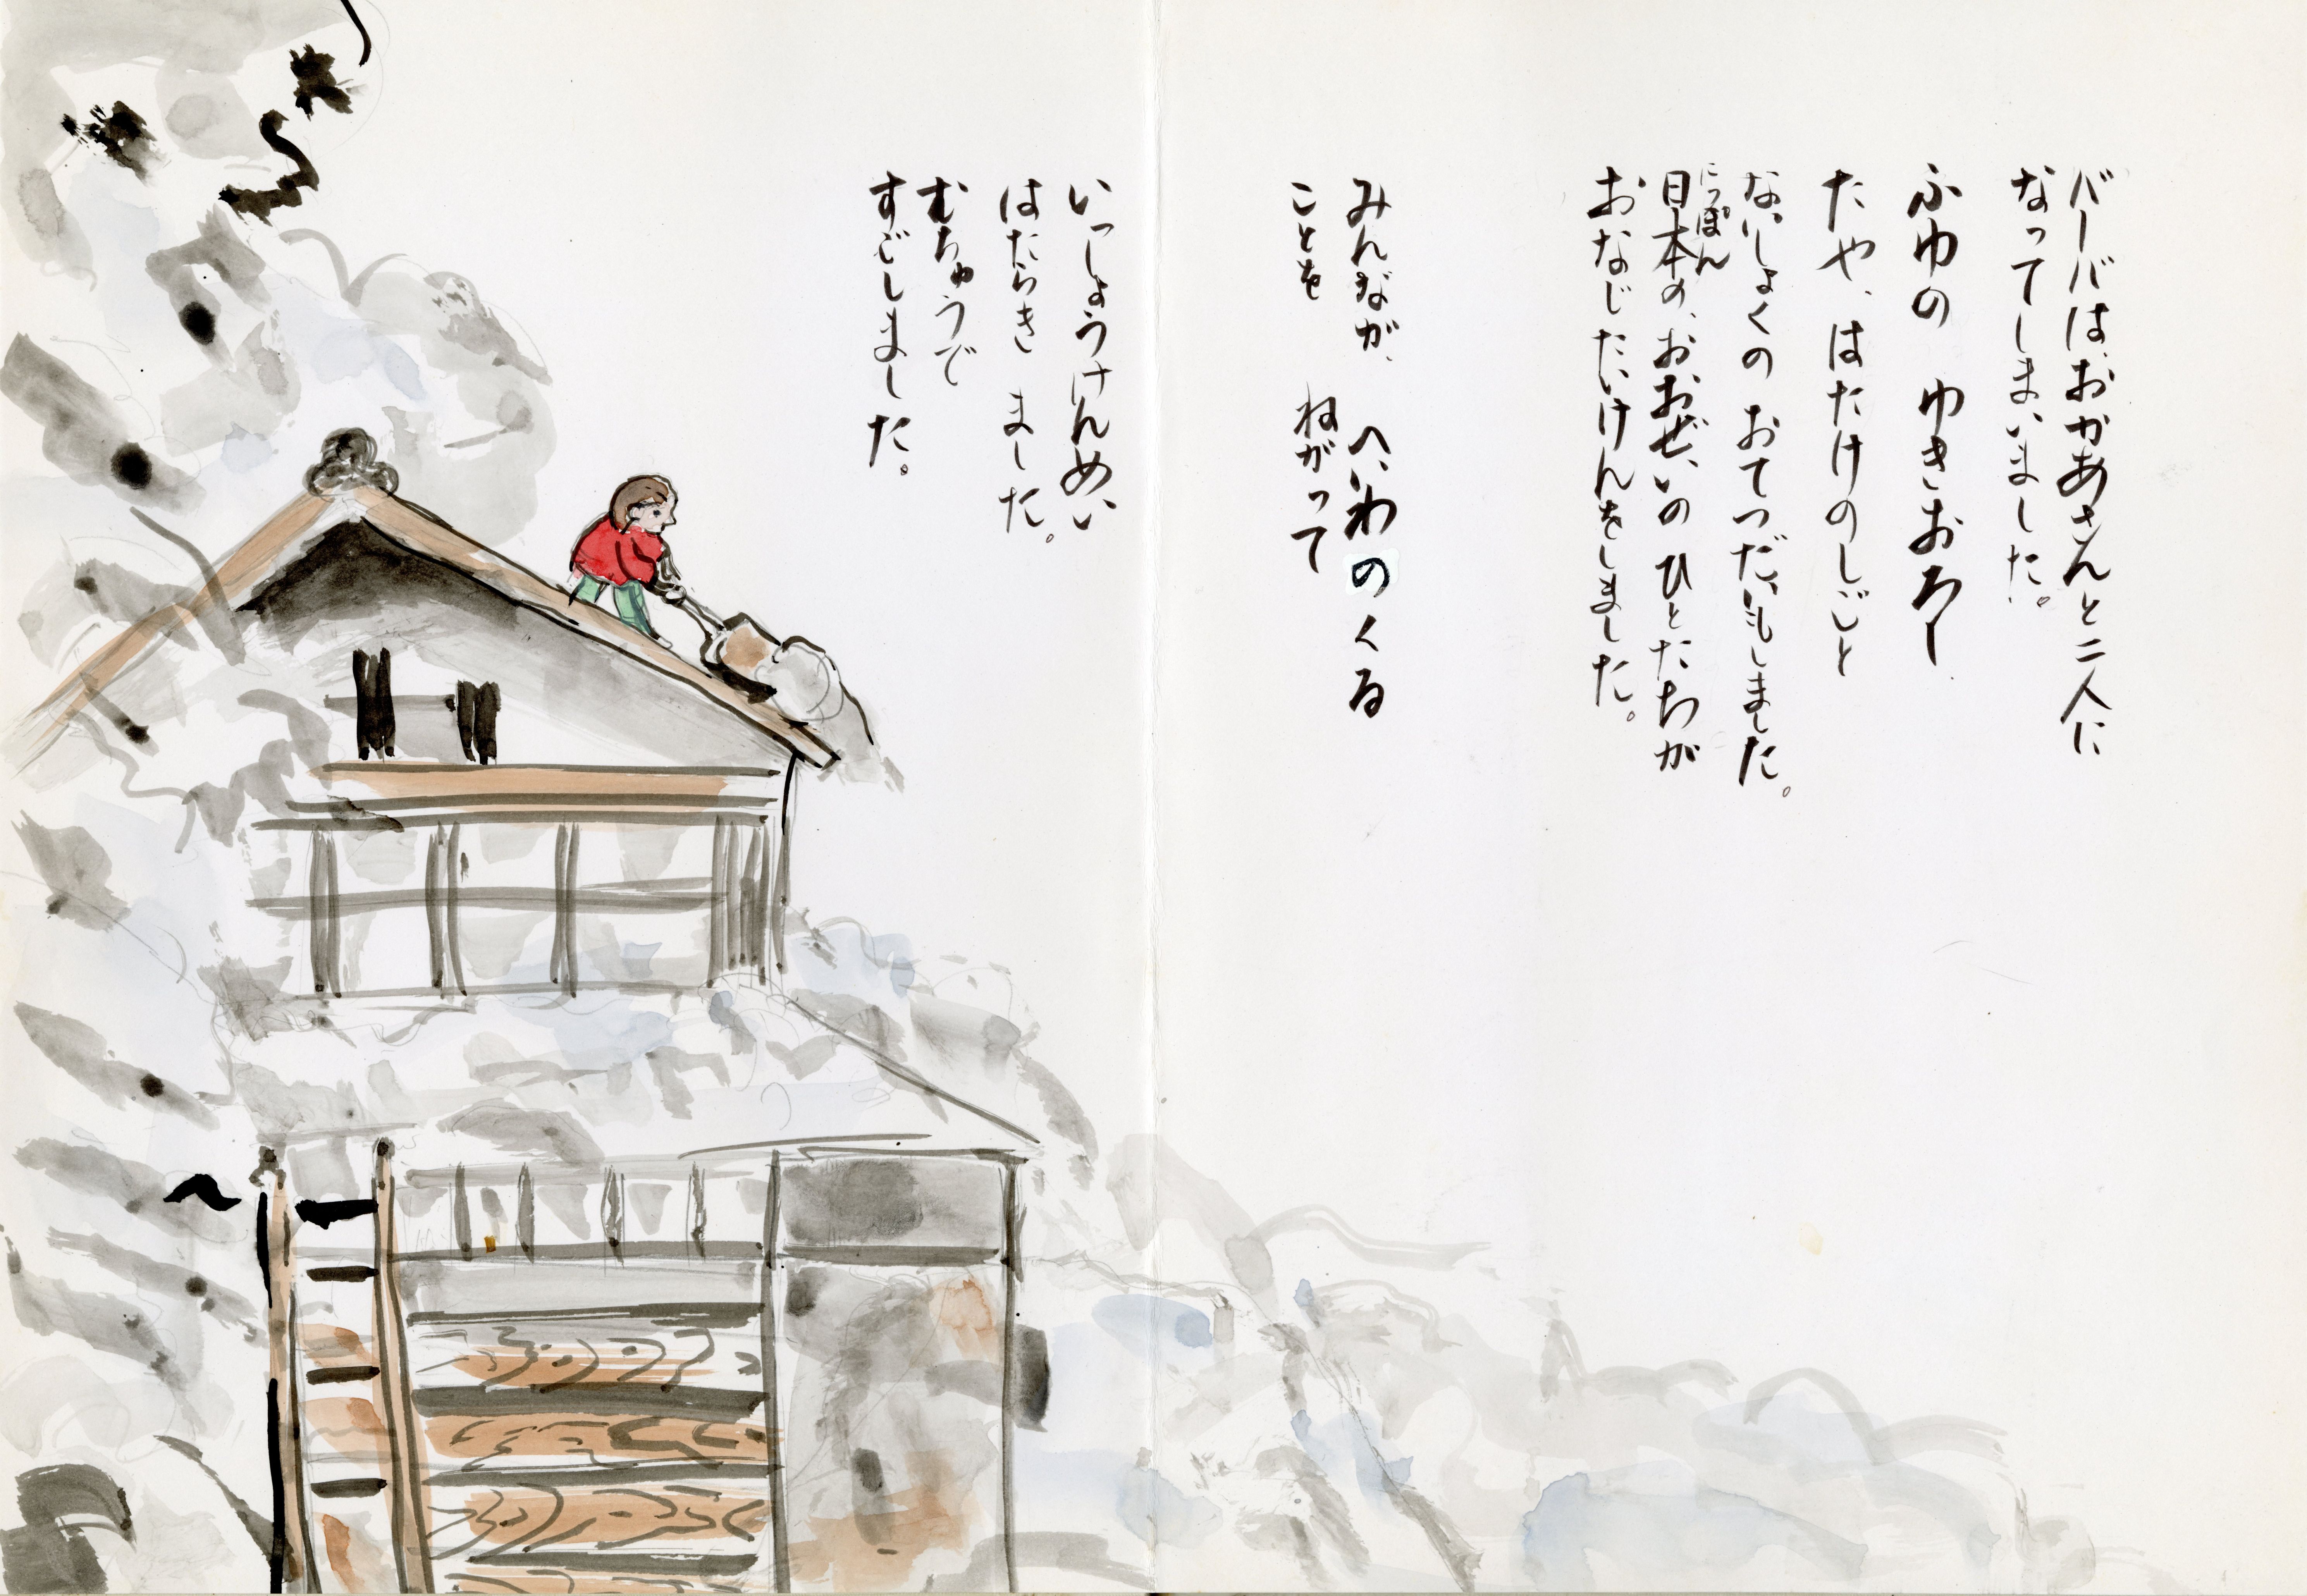 バーバは、おかあさんと二人に
なってしまいました。
ふゆの ゆきおろし
たや、はたけのしごと
ないしょくの おてつだいもしました。
にっぽん
日本の、おおぜいの ひとたちが
おなじ たいけんをしました。
みんなが、 へいわの くる
ことを ねがって
いっしょうけんめい
はたらき ました。
むちゅうで
すごしました。